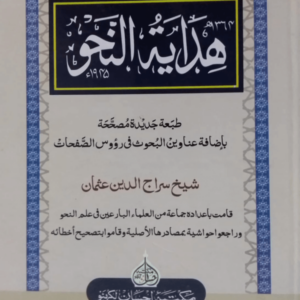 ١٣٦٤هـ
هداية النحو
١٩٤٥ء
طبعة جديدة مصححة
بإضافة عناوين البحوث في رؤوس الصفحات
شيخ سراج الدين عثمان
قامت بإعداده جماعة من العلماء البارعين في علم النحو
وراجعوا حواشيه بمصادرها الأصلية وقاموا بتصحيح أخطائه